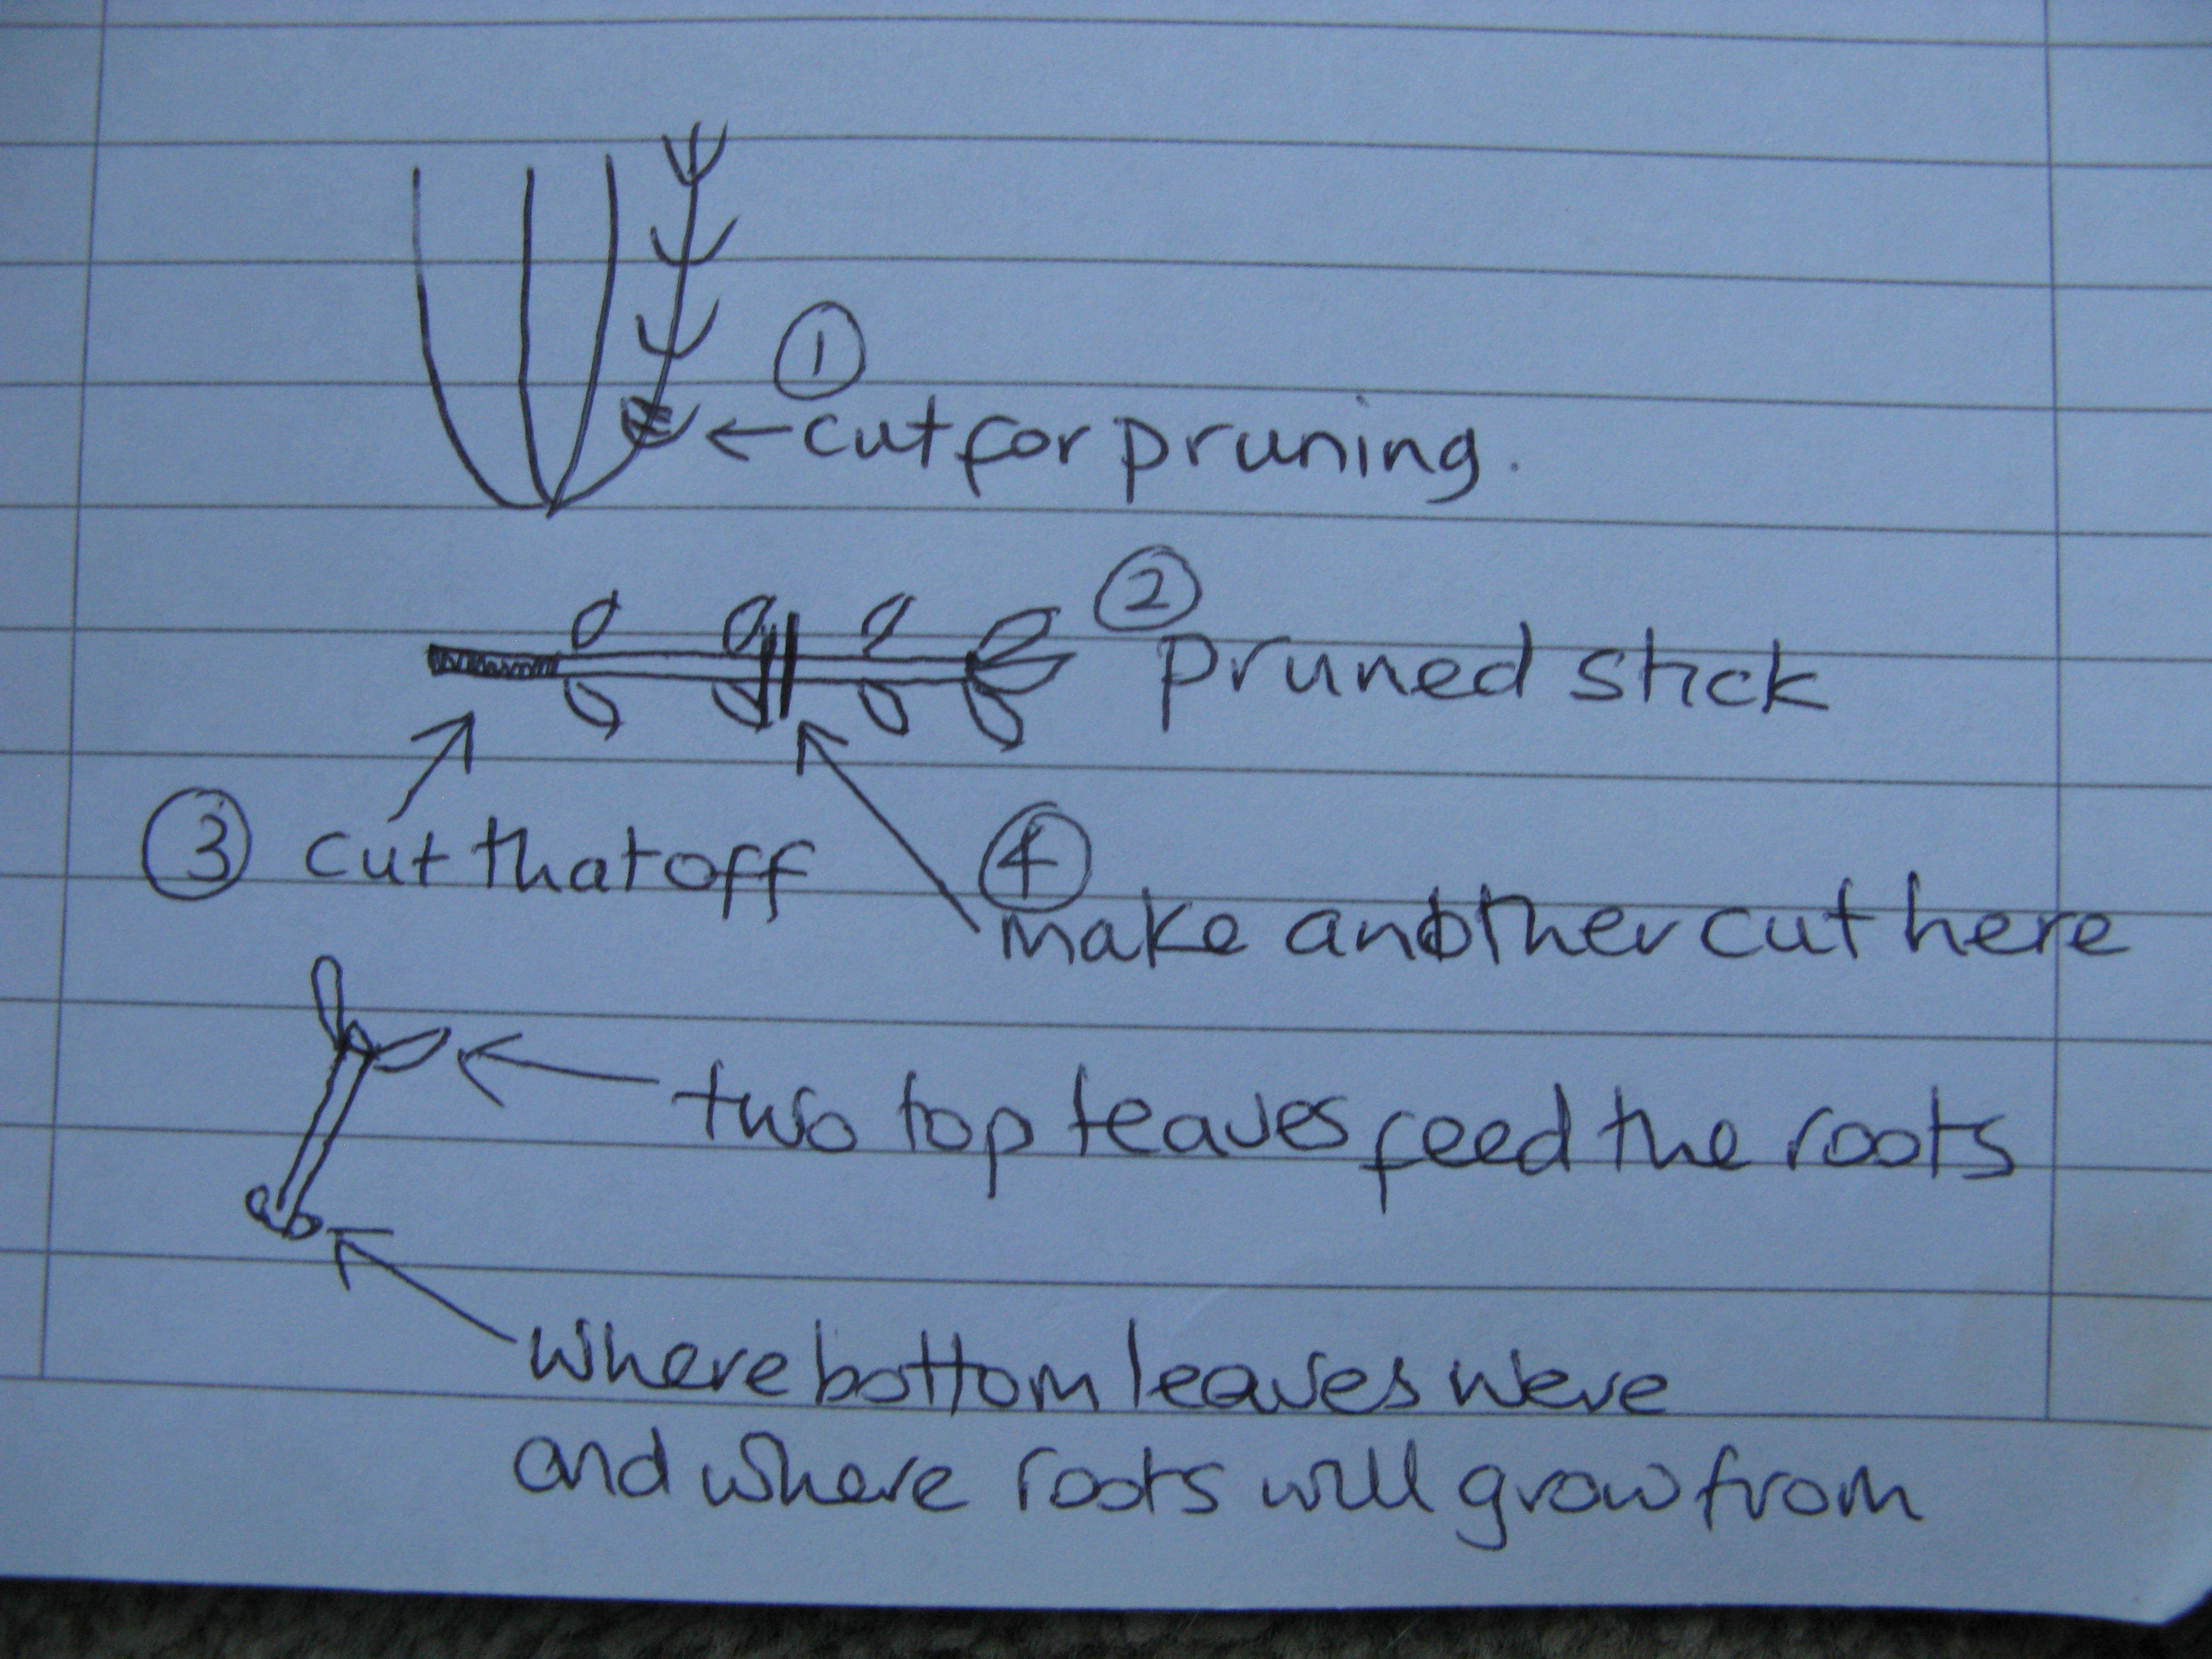 ①
← cut for pruning.
②
pruned stick
③ cut that off
④
make another cut here
two top leaves feed the roots
where bottom leaves were
and where roots will grow from